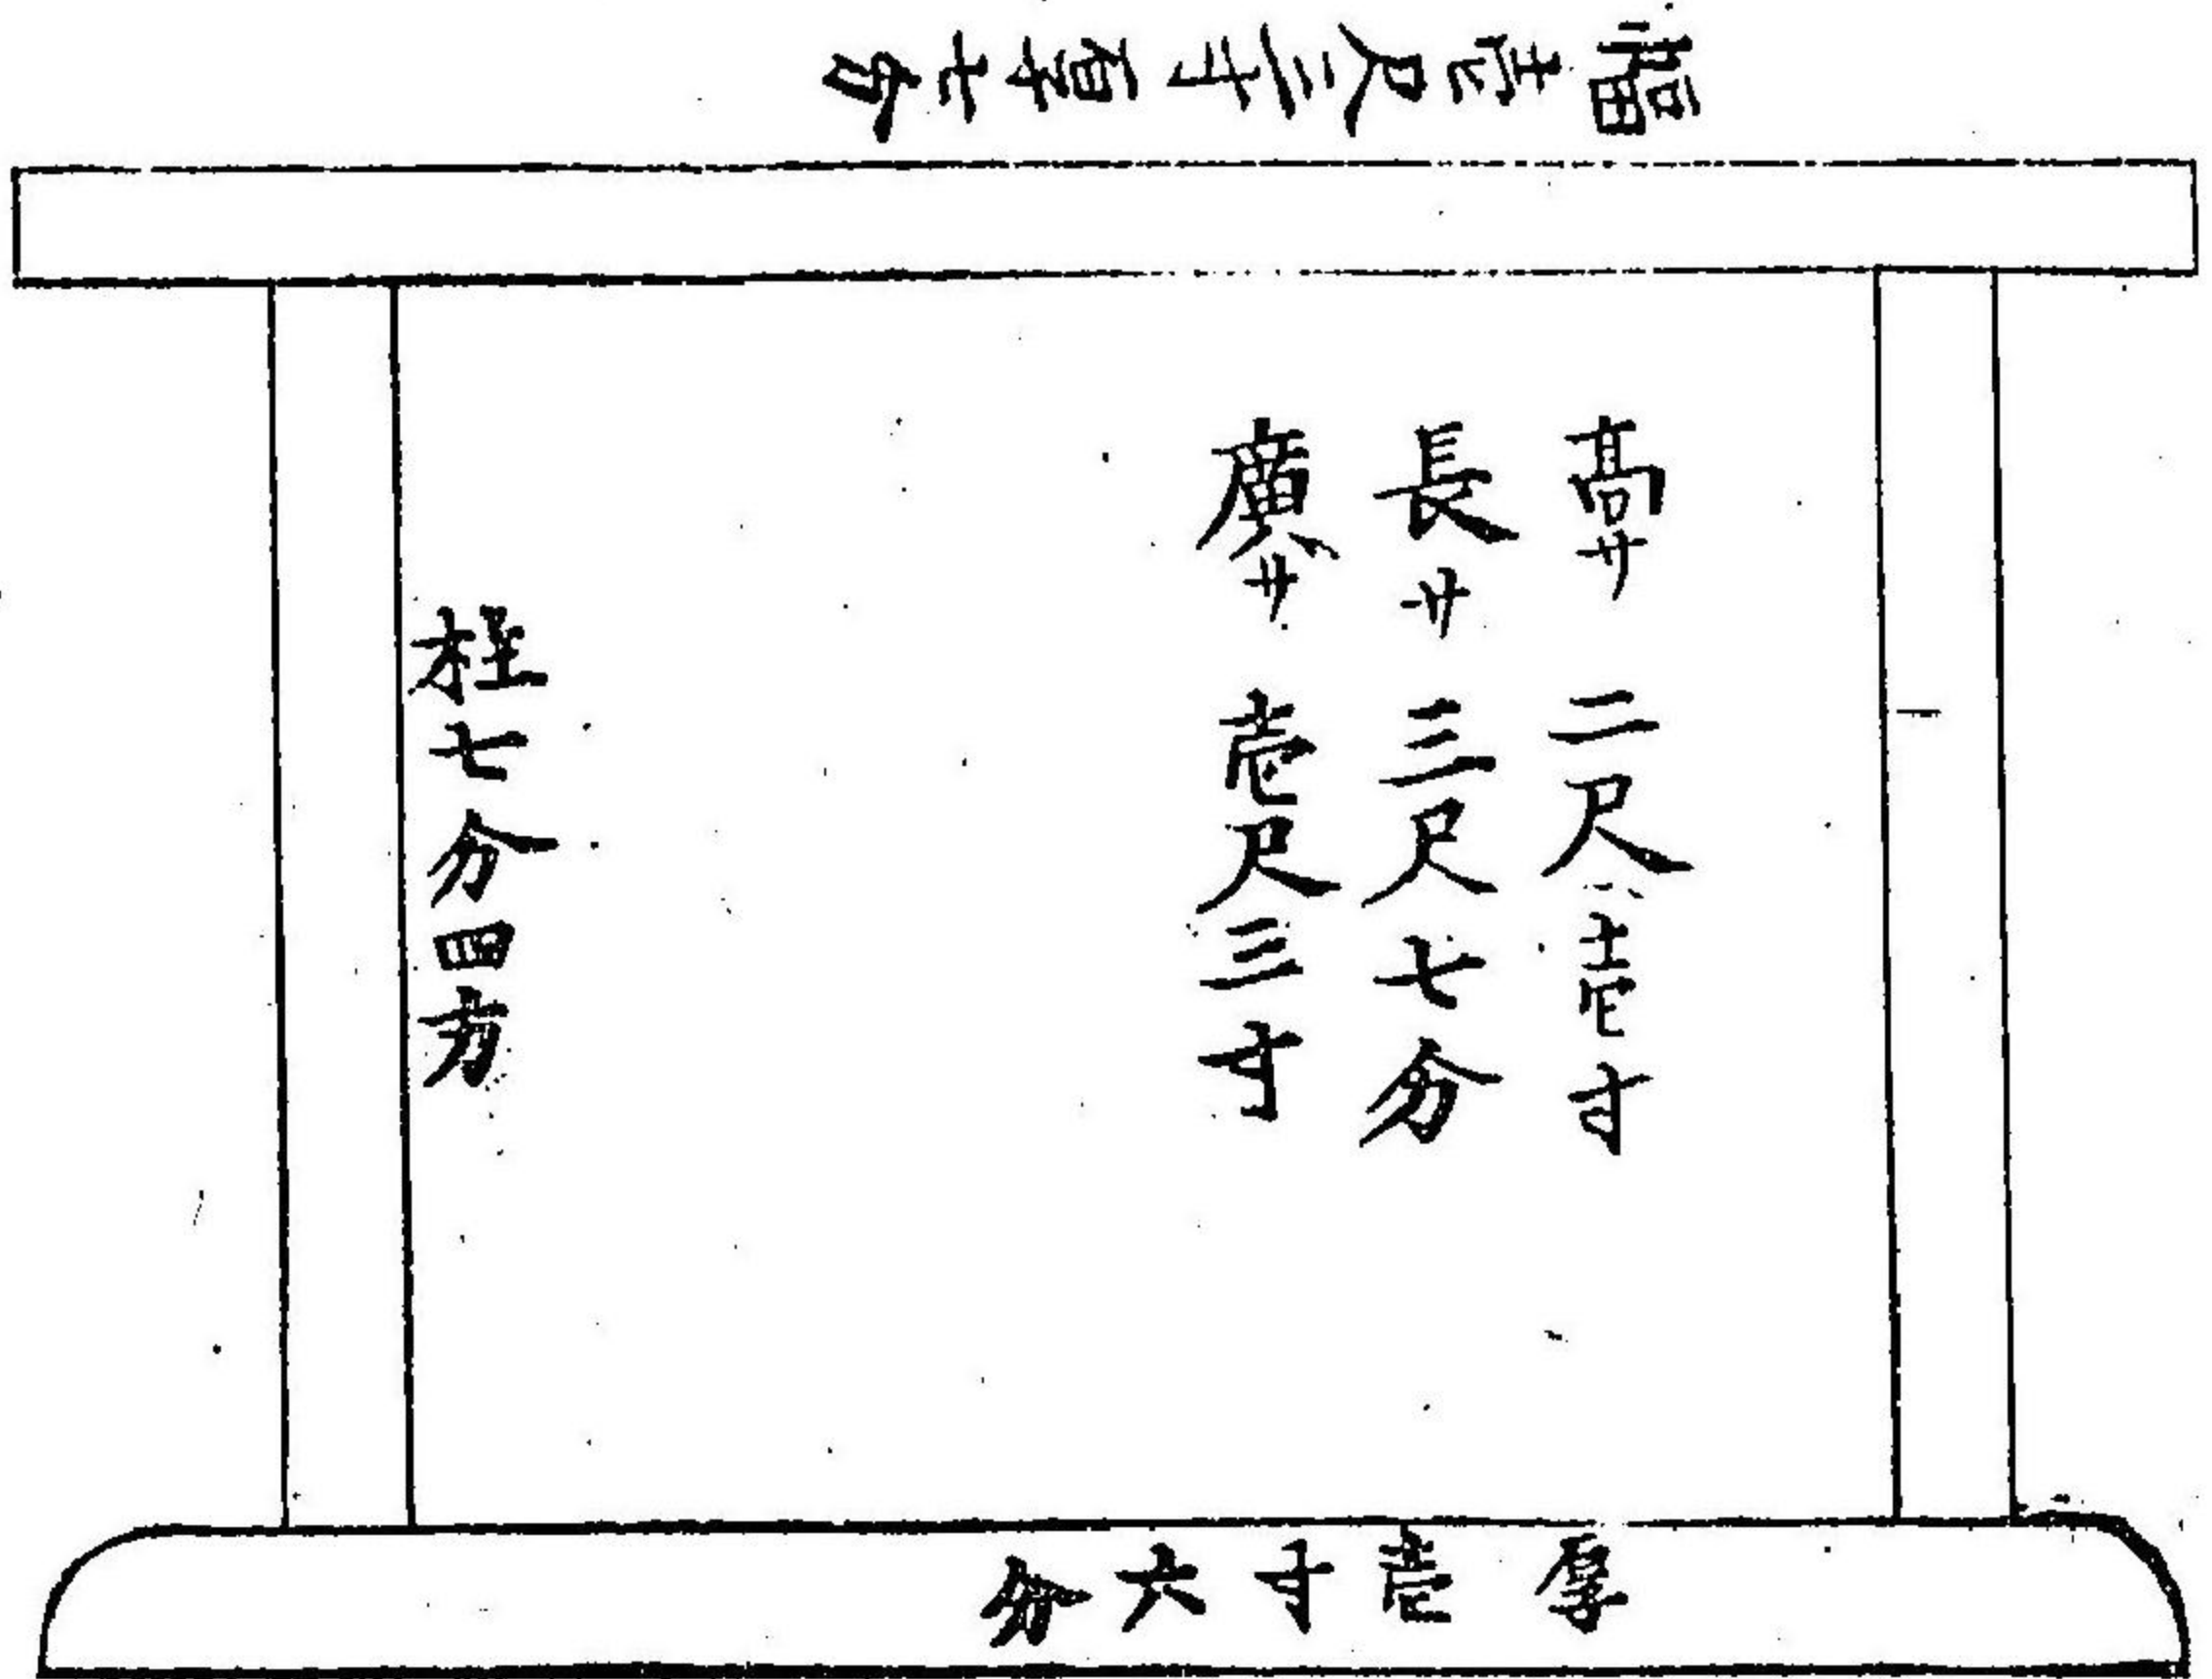 幅壱尺三寸厚七分
高サ 二尺壱寸
長サ 三尺七分
廣サ 壱尺三寸
柱七分四方
厚壱寸六分